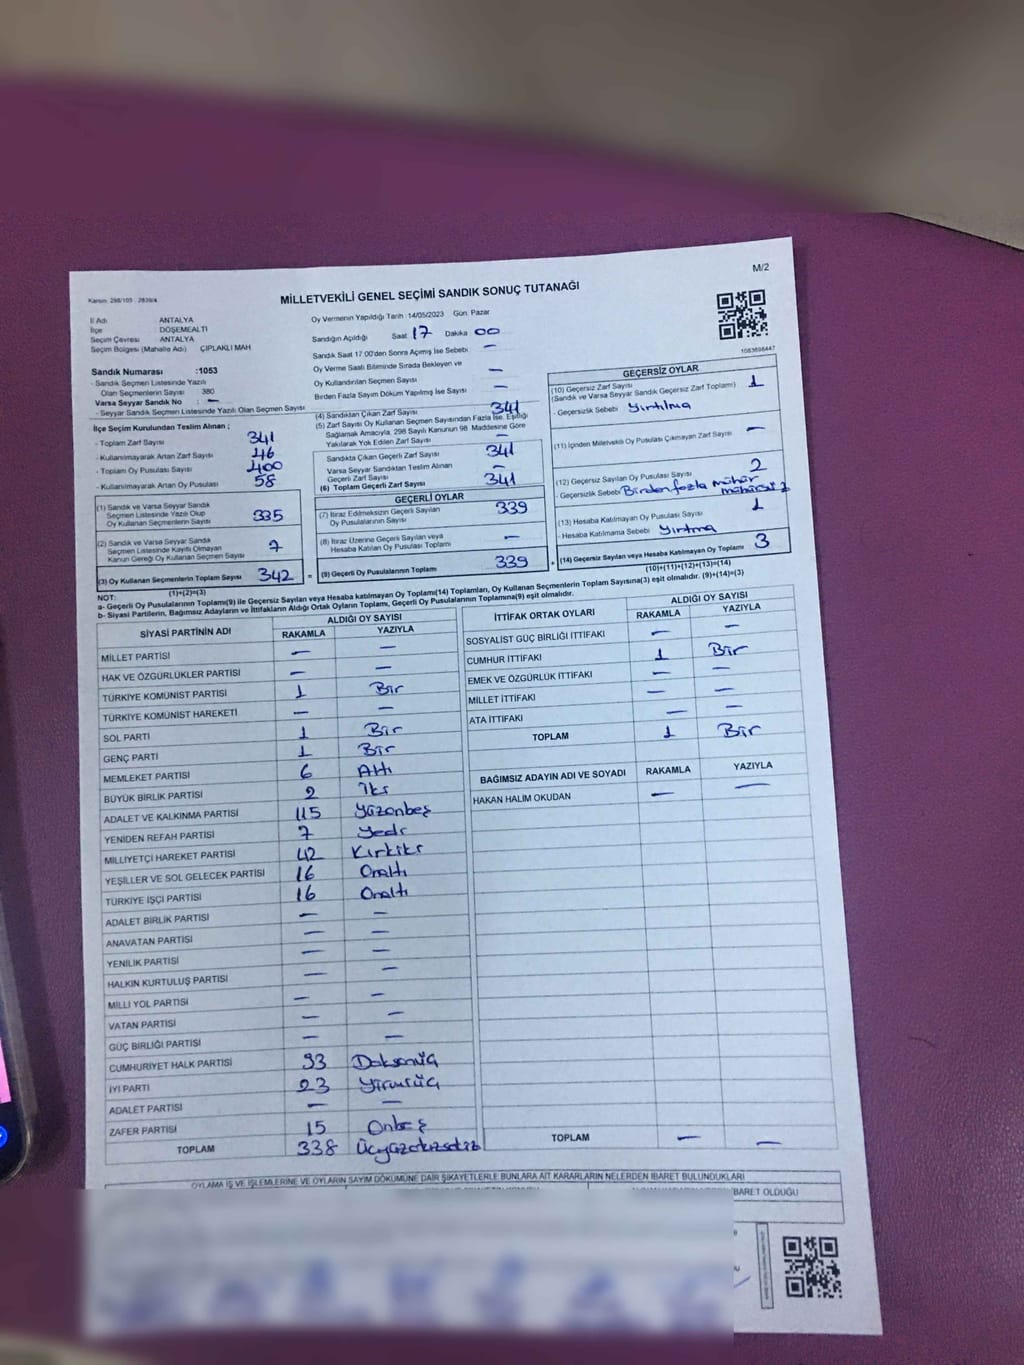 M/2
Kanun: 298/105 : 2839/4
MİLLETVEKİLİ GENEL SEÇİMİ SANDIK SONUÇ TUTANAĞI
1083698447
İl Adı ANTALYA
İlçe DÖŞEMEALTI
Seçim Çevresi ANTALYA
Seçim Bölgesi (Mahalle Adı) ÇIPLAKLI MAH
Sandık Numarası :1053
- Sandık Seçmen Listesinde Yazılı
Olan Seçmenlerin Sayısı 380
Varsa Seyyar Sandık No : —
- Seyyar Sandık Seçmen Listesinde Yazılı Olan Seçmen Sayısı
İlçe Seçim Kurulundan Teslim Alınan ;
- Toplam Zarf Sayısı 341
- Kullanılmayarak Artan Zarf Sayısı 46
- Toplam Oy Pusulası Sayısı 400
- Kullanılmayarak Artan Oy Pusulası 58
(1) Sandık ve Varsa Seyyar Sandık
Seçmen Listesinde Yazılı Olup
Oy Kullanan Seçmenlerin Sayısı 335
(2) Sandık ve Varsa Seyyar Sandık
Seçmen Listesinde Kayıtlı Olmayan
Kanun Gereği Oy Kullanan Seçmen Sayısı 7
(3) Oy Kullanan Seçmenlerin Toplam Sayısı 342
(1)+(2)=(3)
Oy Vermenin Yapıldığı Tarih :14/05/2023 Gün: Pazar
Sandığın Açıldığı Saat 17 Dakika 00
Sandık Saat 17:00'den Sonra Açılmış İse Sebebi —
Oy Verme Saati Bitiminde Sırada Bekleyen ve
Oy Kullandırılan Seçmen Sayısı —
Birden Fazla Sayım Döküm Yapılmış İse Sayısı —
(4) Sandıktan Çıkan Zarf Sayısı 341
(5) Zarf Sayısı Oy Kullanan Seçmen Sayısından Fazla İse, Eşitliği
Sağlamak Amacıyla, 298 Sayılı Kanunun 98 Maddesine Göre
Yakılarak Yok Edilen Zarf Sayısı
Sandıkta Çıkan Geçerli Zarf Sayısı 341
Varsa Seyyar Sandıktan Teslim Alınan
Geçerli Zarf Sayısı —
(6) Toplam Geçerli Zarf Sayısı 341
GEÇERLİ OYLAR
(7) İtiraz Edilmeksizin Geçerli Sayılan
Oy Pusulalarının Sayısı 339
(8) İtiraz Üzerine Geçerli Sayılan veya
Hesaba Katılan Oy Pusulası Toplamı —
= (9) Geçerli Oy Pusulalarının Toplamı 339 +
GEÇERSİZ OYLAR
(10) Geçersiz Zarf Sayısı
(Sandık ve Varsa Seyyar Sandık Geçersiz Zarf Toplamı) 1
- Geçersizlik Sebebi Yırtılma
(11) İçinden Milletvekili Oy Pusulası Çıkmayan Zarf Sayısı —
(12) Geçersiz Sayılan Oy Pusulası Sayısı 2
- Geçersizlik Sebebi Birden fazla mühür
(13) Hesaba Katılmayan Oy Pusulası Sayısı 1
- Hesaba Katılmama Sebebi Yırtma
(14) Geçersiz Sayılan veya Hesaba Katılmayan Oy Toplamı 3
(10)+(11)+(12)+(13)=(14)
NOT:
a- Geçerli Oy Pusulalarının Toplamı(9) ile Geçersiz Sayılan veya Hesaba katılmayan Oy Toplamı(14) Toplamları, Oy Kullanan Seçmenlerin Toplam Sayısına(3) eşit olmalıdır. (9)+(14)=(3)
b- Siyasi Partilerin, Bağımsız Adayların ve İttifakların Aldığı Ortak Oyların Toplamı, Geçerli Oy Pusulalarının Toplamına(9) eşit olmalıdır.
SİYASİ PARTİNİN ADI ALDIĞI OY SAYISI
RAKAMLA YAZIYLA
MİLLET PARTİSİ — —
HAK VE ÖZGÜRLÜKLER PARTİSİ — —
TÜRKİYE KOMÜNİST PARTİSİ 1 Bir
TÜRKİYE KOMÜNİST HAREKETİ — —
SOL PARTİ 1 Bir
GENÇ PARTİ 1 Bir
MEMLEKET PARTİSİ 6 Altı
BÜYÜK BİRLİK PARTİSİ 2 İki
ADALET VE KALKINMA PARTİSİ 115 Yüzonbeş
YENİDEN REFAH PARTİSİ 7 Yedi
MİLLİYETÇİ HAREKET PARTİSİ 42 Kırkiki
YEŞİLLER VE SOL GELECEK PARTİSİ 16 Onaltı
TÜRKİYE İŞÇİ PARTİSİ 16 Onaltı
ADALET BİRLİK PARTİSİ — —
ANAVATAN PARTİSİ — —
YENİLİK PARTİSİ — —
HALKIN KURTULUŞ PARTİSİ — —
MİLLİ YOL PARTİSİ — —
VATAN PARTİSİ — —
GÜÇ BİRLİĞİ PARTİSİ — —
CUMHURİYET HALK PARTİSİ 93 Doksanüç
İYİ PARTİ 23 Yirmiüç
ADALET PARTİSİ — —
ZAFER PARTİSİ 15 Onbeş
TOPLAM 338 Üçyüzotuzsekiz
İTTİFAK ORTAK OYLARI ALDIĞI OY SAYISI
RAKAMLA YAZIYLA
SOSYALİST GÜÇ BİRLİĞİ İTTİFAKI — —
CUMHUR İTTİFAKI 1 Bir
EMEK VE ÖZGÜRLÜK İTTİFAKI — —
MİLLET İTTİFAKI — —
ATA İTTİFAKI — —
TOPLAM 1 Bir
BAĞIMSIZ ADAYIN ADI VE SOYADI RAKAMLA YAZIYLA
HAKAN HALİM OKUDAN — —
TOPLAM — —
OYLAMA İŞ VE İŞLEMLERİNE VE OYLARIN SAYIM DÖKÜMÜNE DAİR ŞİKAYETLERLE BUNLARA AİT KARARLARIN NELERDEN İBARET BULUNDUKLARI
İBARET OLDUĞU